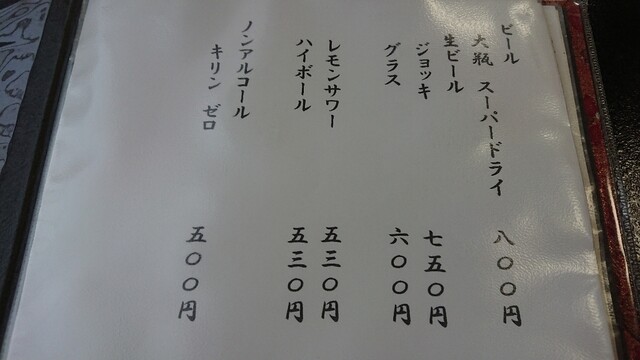 ビール
大瓶 スーパードライ 八〇〇円
生ビール
ジョッキ 七五〇円
グラス 六〇〇円
レモンサワー 五三〇円
ハイボール 五三〇円
ノンアルコール
キリン ゼロ 五〇〇円